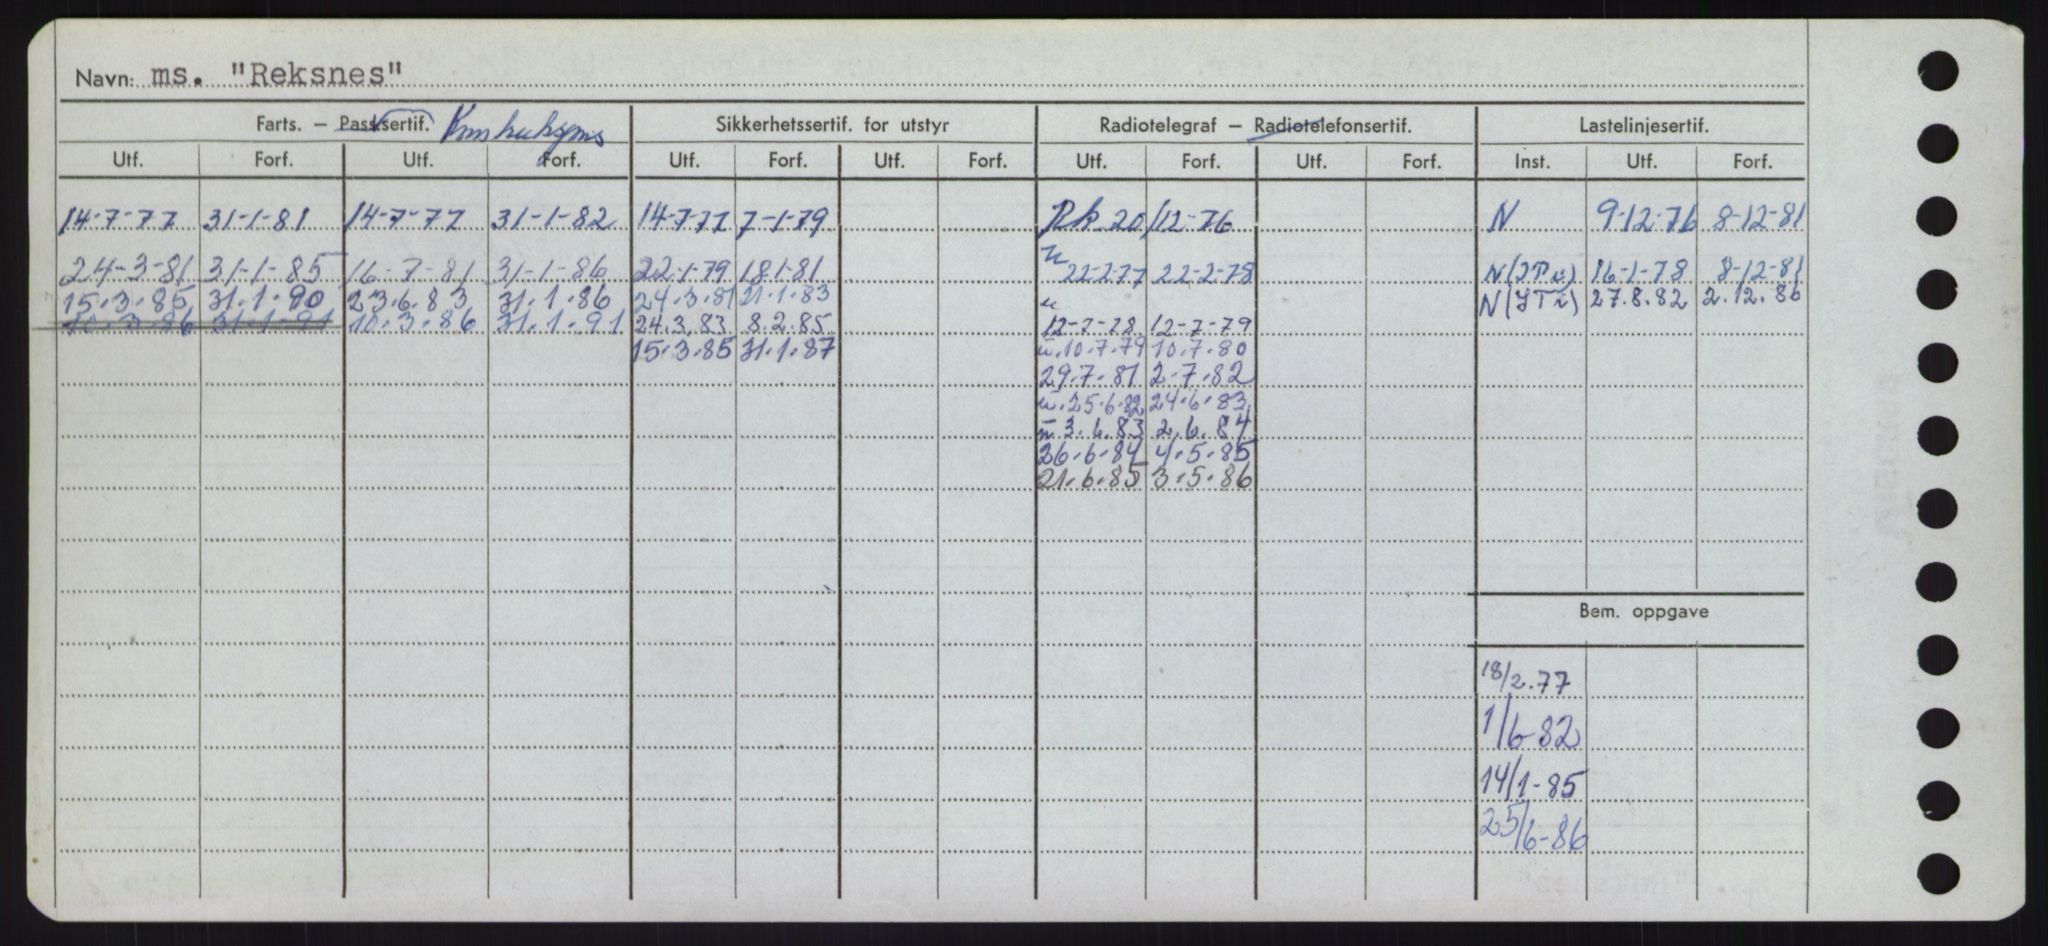 Navn: ms. "Reksnes"
Farts. – Passsertif. Sikkerhetssertif. for utstyr Radiotelegraf – Radiotelefonsertif. Lastelinjesertif.
Utf. Forf. Utf. Forf. Utf. Forf. Utf. Forf. Utf. Forf. Utf. Forf. Inst. Utf. Forf.
14-7-77 31-1-81 14-7-77 31-1-82 14-7-77 7-1-79 20/12-76 N 9-12-76 8-12-81
24-3-81 31-1-85 16-7-81 31-1-86 22-1-79 18.1-81 22-2-77 22-2-78 16-1-78 8-12-81
15.3.85 31.1.90 23.6.83 31.1.86 24.3.81 21.1.83 27.8.82 2.12.86
10.3.86 31.1.91 10.3.86 31.1.91 24.3.83 8.2.85 12-7-78 12-7-79
15.3.85 31.1.87 10.7.79 10.7.80
29.7.81 2.7.82
25.6.82 24.6.83
3.6.83 2.6.84
26.6.84 4.5.85
21.6.85 3.5.86
Bem. oppgave
18/2.77
1/6-82
14/1-85
25/6-86